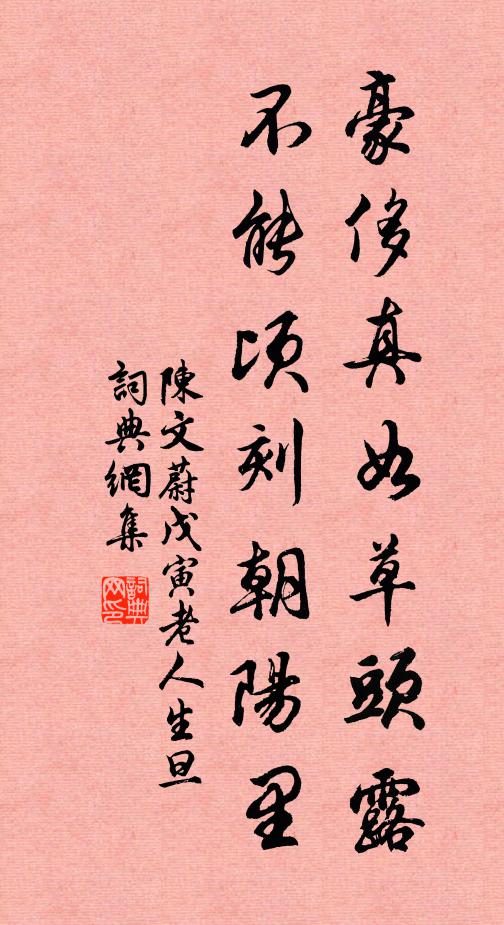 豪侈真如草頭露
不能頃刻朝陽里
陳文蔚戊寅老人生旦
詞典網集
詞典
网印